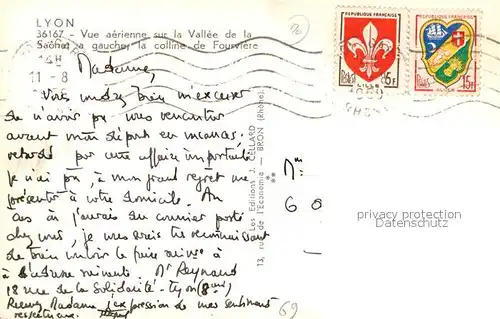 LYON
36167 - Vue aérienne sur la Vallée de la
Saône, à gauche, la colline de Fourvière
11 - 8
RÉPUBLIQUE FRANÇAISE
Postes
LILLE
5F
RÉPUBLIQUE FRANÇAISE
Postes
15F
ALGER
Madame,
Vous voudrez bien m'excuser
de n'avoir pu vous rencontrer
avant mon départ en vacances.
retardé par une affaire importante
je n'ai pu, à mon grand regret me
présenter à votre domicile. Au
cas où j'aurais du courrier porté
chez vous, je vous serais très reconnaissant
de bien vouloir le faire suivre à
à l'adresse suivante. Mr Reynaud
18 rue de la Solidarité - Lyon (8ème)
Recevez Madame l'expression de mes sentiments
respectueux.
Les Editions J. CELLARD
13, rue de l'Economie - BRON (Rhône)
Mm
60
69
privacy protection
Datenschutz